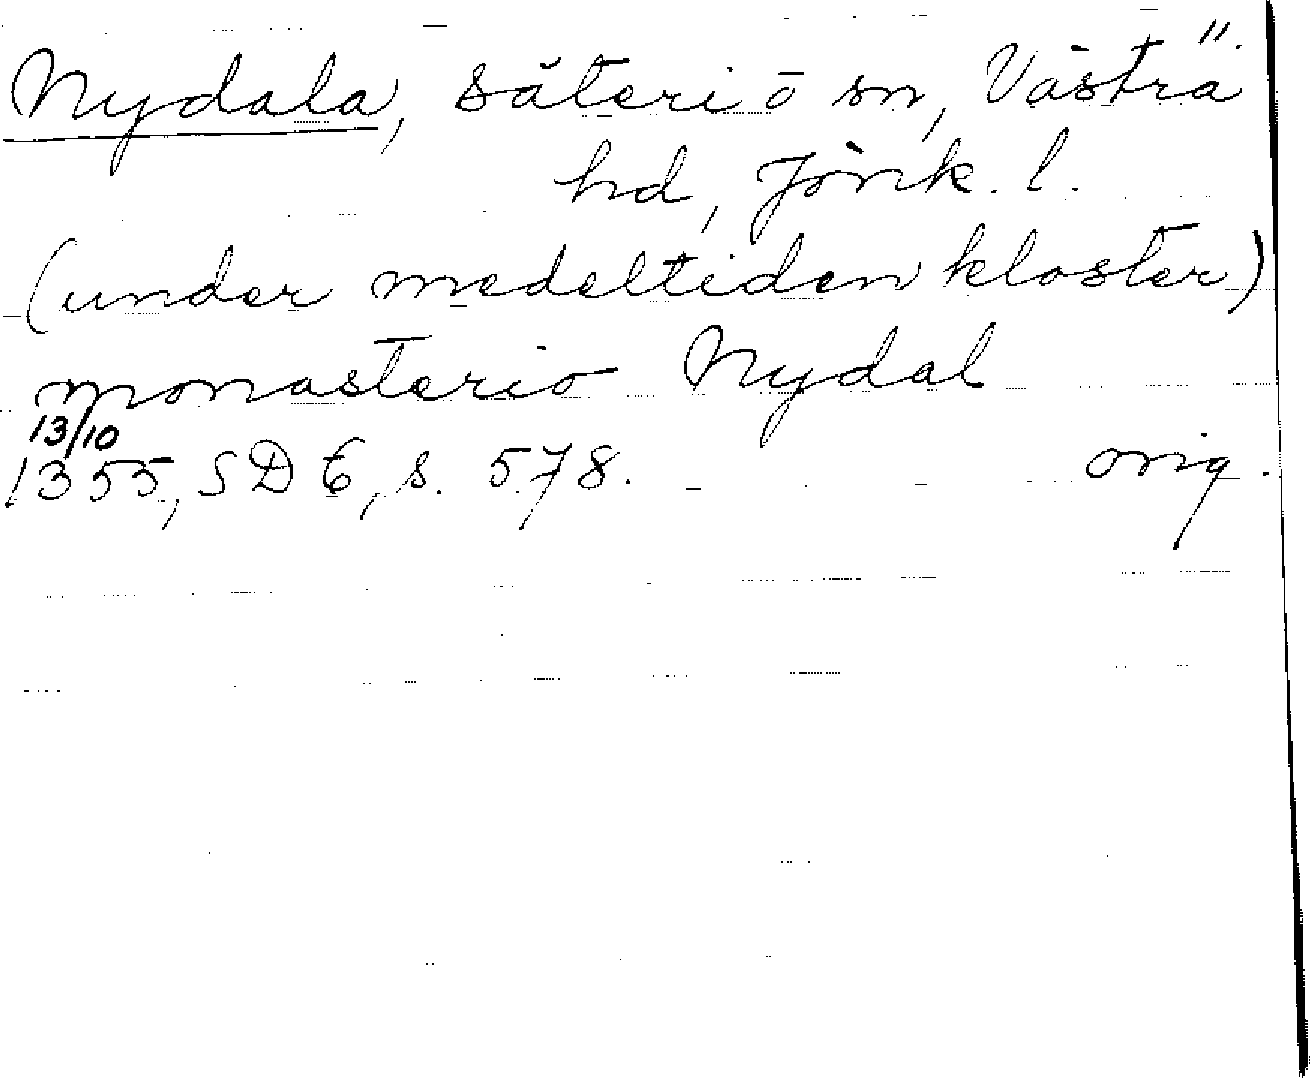 Nydala, säteri o sn, Västra ".
hd, Jönk. l.
(under medeltiden kloster)
monasterio Nydal
13/10
1355, SD 6, s. 578. orig.